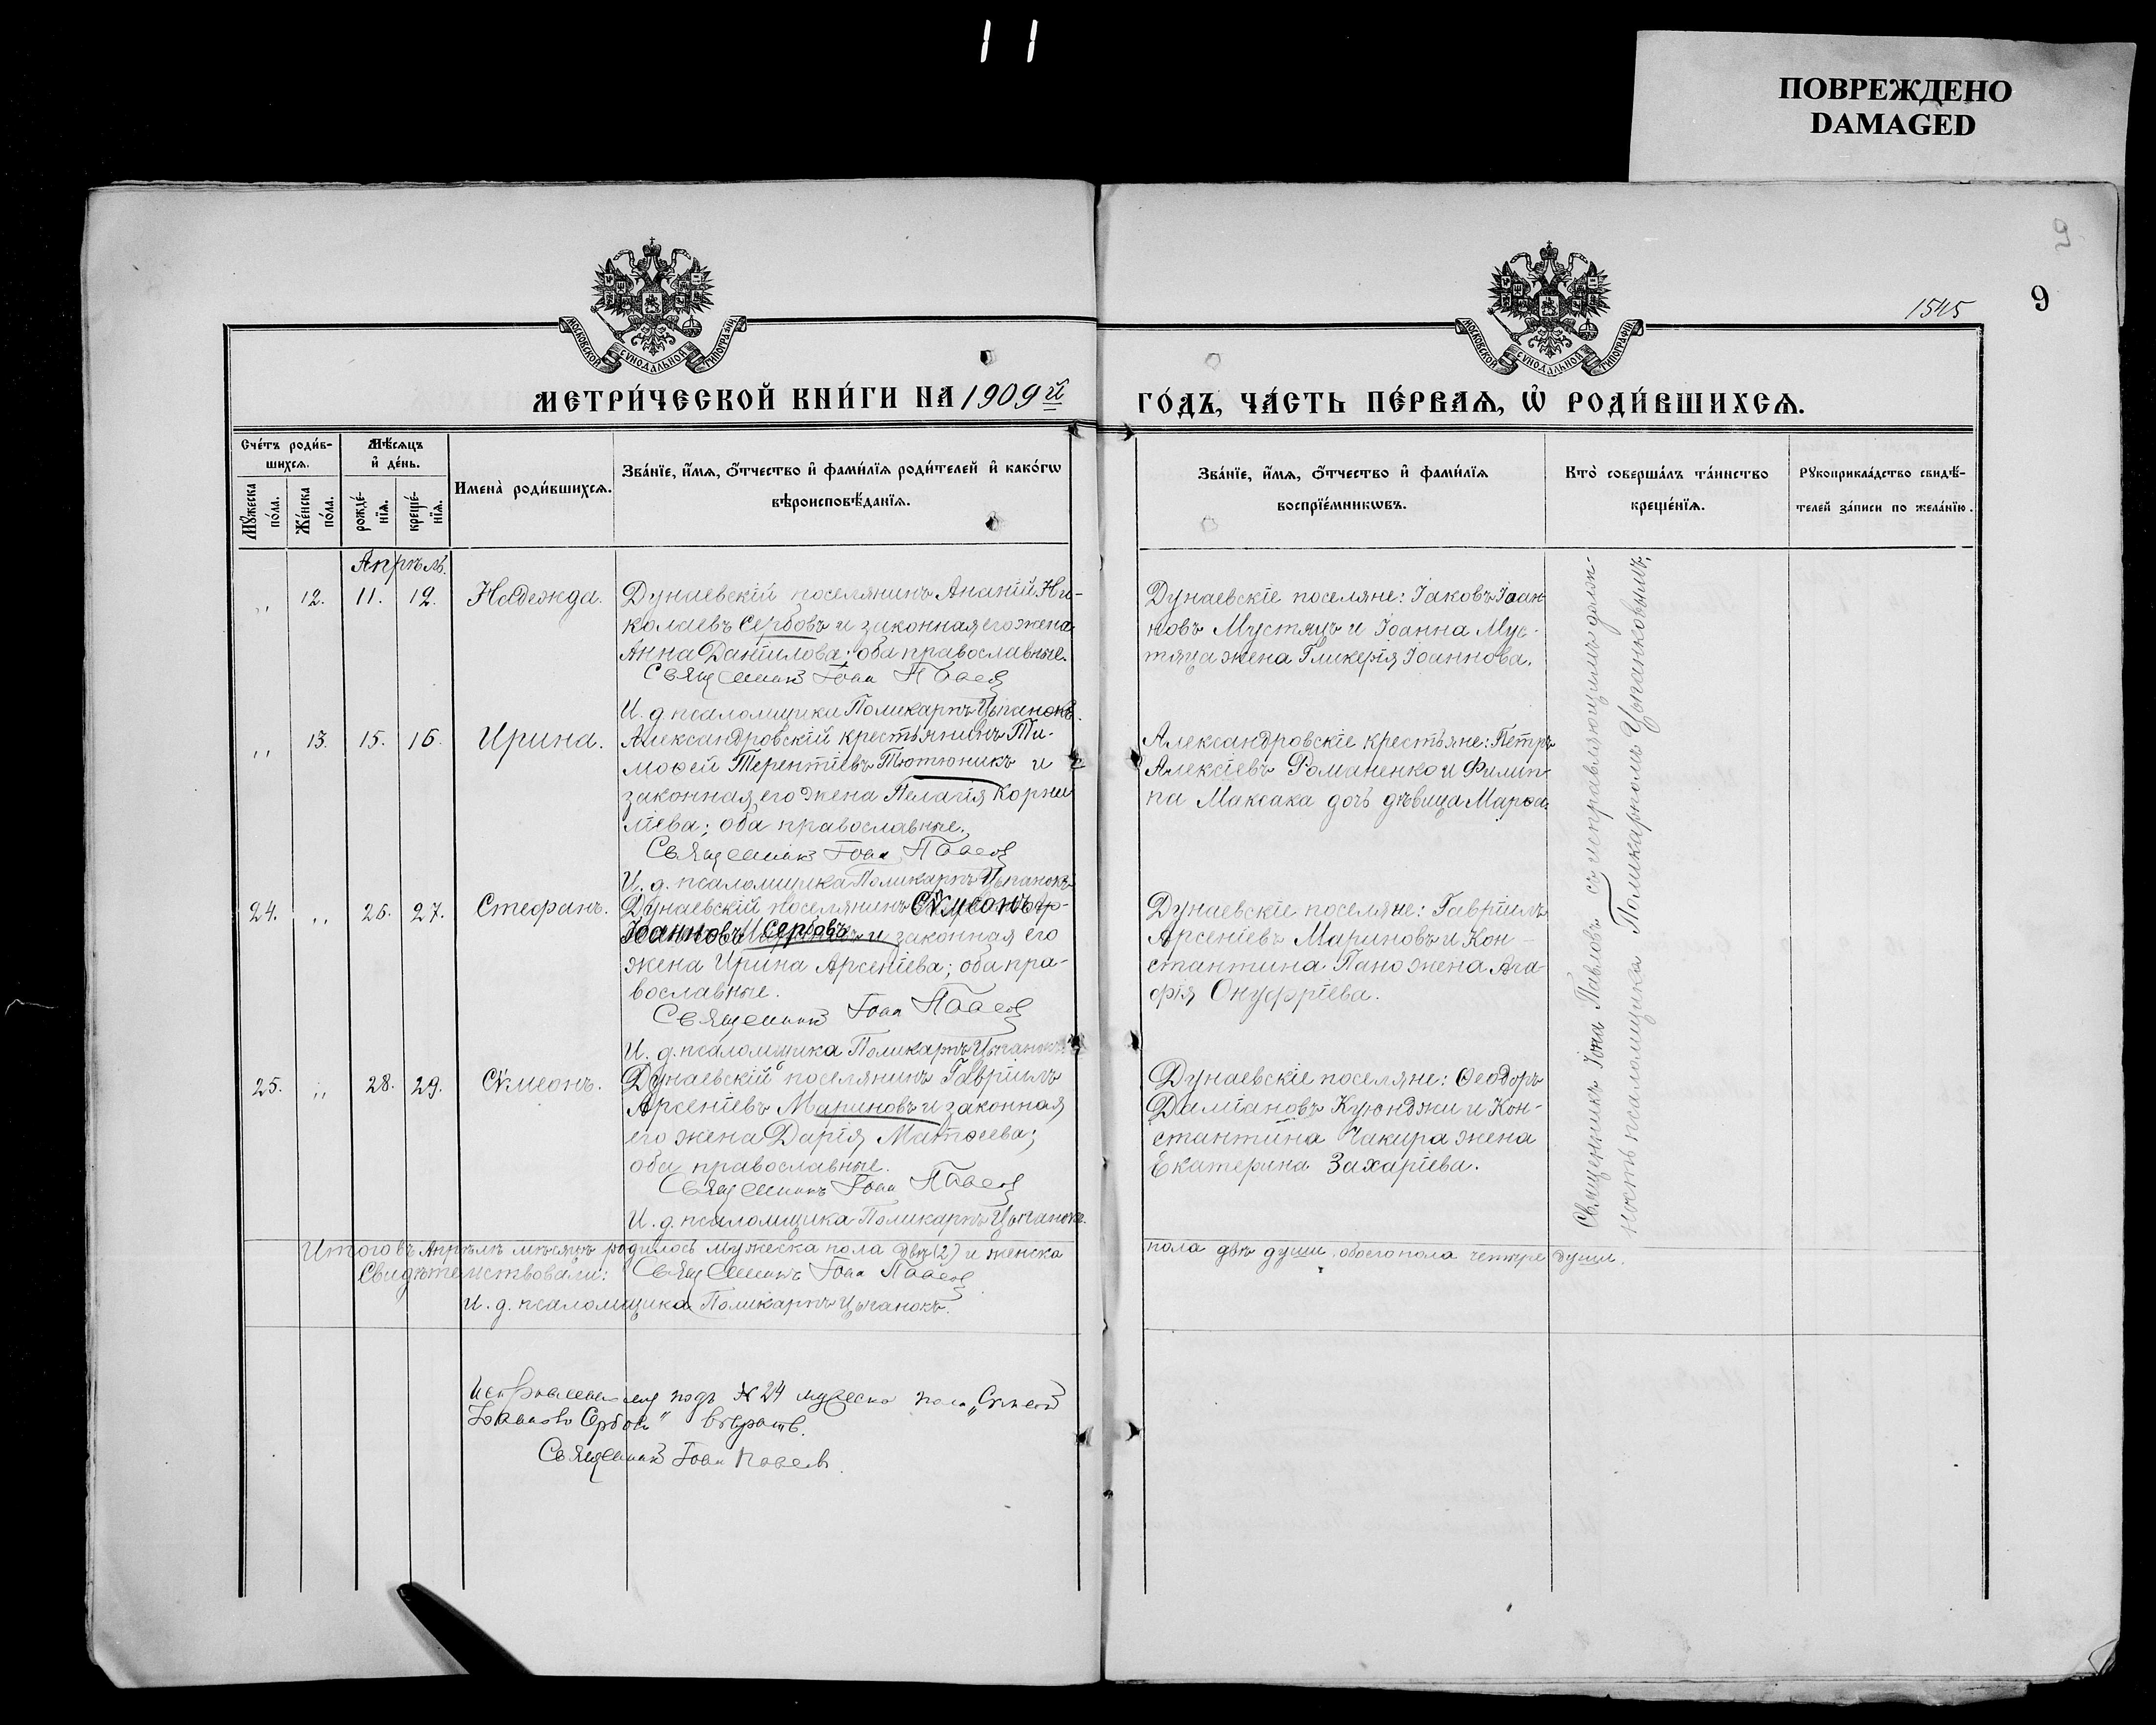 11
ПОВРЕЖДЕНО
DAMAGED
9
1545
МОСКОВСКОЙ СѴНОДАЛЬНОЙ ТИПОГРАФІИ
МОСКОВСКОЙ СѴНОДАЛЬНОЙ ТИПОГРАФІИ
МЕТРИ́ЧЕСКОЙ КНИ́ГИ НА 1909й
ГО́ДЪ, ЧА́СТЬ ПЕ́РВАѦ, Ѡ РОДИ́ВШИХСѦ.
Сче́тъ роди́в-
шихсѧ.
Мꙋ́жеска по́ла.
Же́нска по́ла.
Мѣ́сѧцъ
и҆ де́нь.
рожде́-
нїѧ.
креще́-
нїѧ.
Имена̀ роди́вшихсѧ.
Зва́нїе, и҆́мѧ, ѻ҆́тчество и҆ фами́лїѧ роди́телей и҆ како́гѡ
вѣроисповѣ́данїѧ.
Зва́нїе, и҆́мѧ, ѻ҆́тчество и҆ фами́лїѧ
воспрїе́мникѡвъ.
Кто̀ соверша́лъ та́инство
креще́нїѧ.
Рꙋкоприкла́дство свидѣ́-
телей за́писи по жела́нїю.
Апрѣль.
„ 12. 11. 12. Надежда.
Дунаевскій поселянинъ Ананій Ни-
колаевъ Сербовъ и законная его жена
Анна Даніилова; оба православные.
Священникъ Іоан Павлов
И. д. псаломщика Поликарпъ Цыганокъ.
Дунаевскіе поселяне: Іаковъ Іоан-
новъ Мустяцъ и Іоанна Мус-
тяца жена Гликерія Іоаннова.
„ 13. 15. 16. Ирина.
Александровскій крестьянинъ Ти-
моѳей Терентіевъ Тютюникъ и
законная его жена Пелагія Корни-
ліева; оба православные.
Священникъ Іоан Павлов
И. д. псаломщика Поликарпъ Цыганокъ
Александровскіе крестьяне: Петръ
Алексіевъ Романенко и Филип-
па Максака дочь дѣвица Марѳа.
24. „ 26. 27. Стефанъ.
Дунаевскій поселянинъ Сѵмеонъ
Іоанновъ Сербовъ и законная его
жена Ирина Арсеніева; оба пра-
вославные.
Священникъ Іоан Павлов
И. д. псаломщика Поликарпъ Цыганокъ
Дунаевскіе поселяне: Гавріилъ
Арсеніевъ Мариновъ и Кон-
стантина Пано жена Ага-
фія Онуфріева.
25. „ 28. 29. Сѵмеонъ.
Дунаевскій поселянинъ Гавріилъ
Арсеніевъ Мариновъ и законная
его жена Дарія Матѳеева;
оба православные.
Священникъ Іоан Павлов
И. д. псаломщика Поликарпъ Цыганокъ.
Дунаевскіе поселяне: Ѳеодоръ
Даміановъ Куюнджи и Кон-
стантина Чакира жена
Екатерина Захаріева.
Священникъ Іоан Павловъ съ исправляющимъ долж-
ность псаломщика Поликарпомъ Цыганковымъ.
Итого въ Апрѣлѣ мѣсяцѣ родилось мужеска пола двѣ (2) и женска
пола двѣ души, обоего пола четыре души.
Свидѣтельствовали: Священникъ Іоан Павлов
И. д. псаломщика Поликарпъ Цыганокъ.
подъ № 24 мужеска пола „Сѵмеон
Іоаннов Сербов"
Священникъ Іоан Павлов.